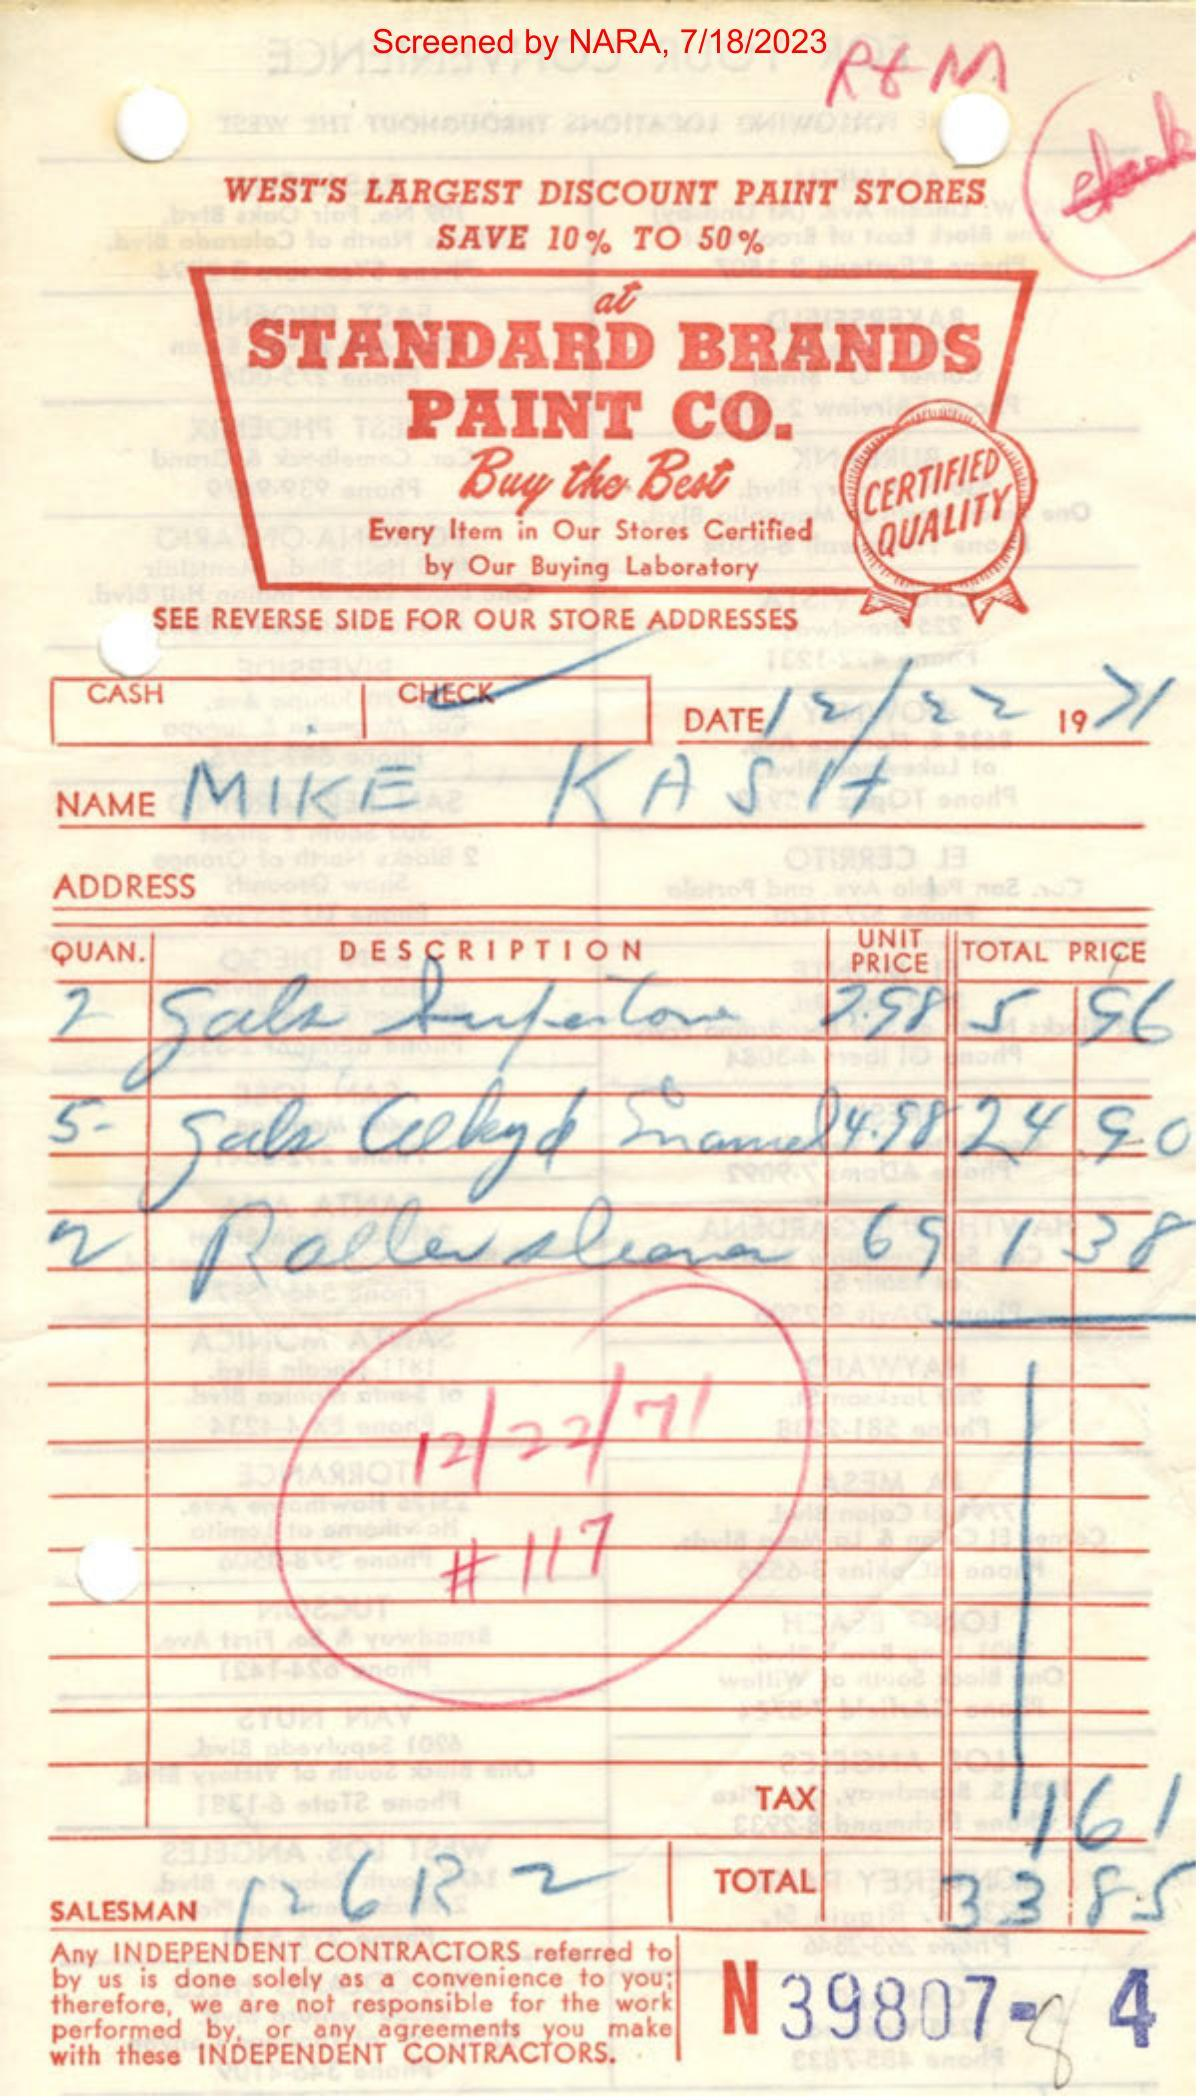 Screened by NARA, 7/18/2023
R&M
WEST'S LARGEST DISCOUNT PAINT STORES
SAVE 10% TO 50%
at
STANDARD BRANDS
PAINT CO.
Buy the Best
CERTIFIED
QUALITY
Every Item in Our Stores Certified
by Our Buying Laboratory
SEE REVERSE SIDE FOR OUR STORE ADDRESSES
CASH CHECK DATE 12/22 1971
NAME MIKE KASH
ADDRESS
QUAN. DESCRIPTION UNIT PRICE TOTAL PRICE
2 gals Supertone 2.98 5 96
5- gals Alkyd Enamel 4.98 24 90
2 Roller 69 1 38
12/22/71
#117
TAX 1 61
TOTAL 33 85
SALESMAN
Any INDEPENDENT CONTRACTORS referred to
by us is done solely as a convenience to you;
therefore, we are not responsible for the work
performed by, or any agreements you make
with these INDEPENDENT CONTRACTORS.
N 39807-8 4